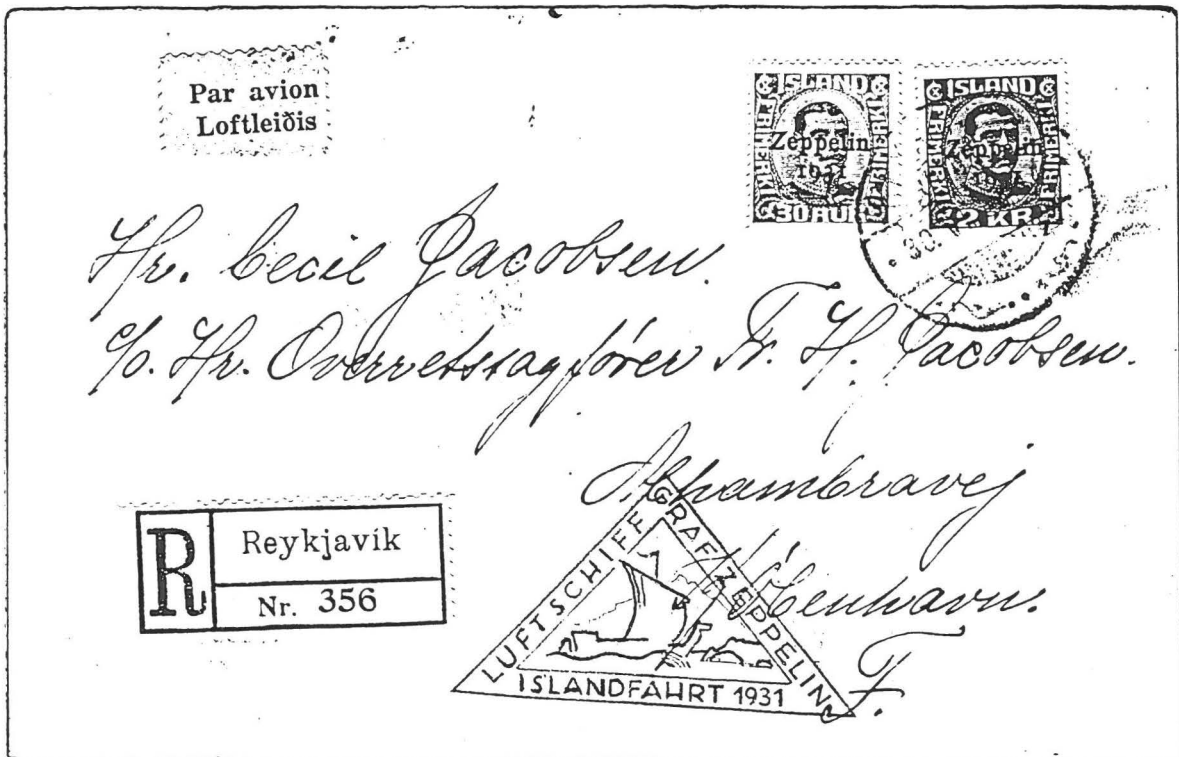 Par avion
Loftleiðis
ISLAND
FRIMERKI
FRIMERKI
Zeppelin
1931
30 AUR
ISLAND
FRIMERKI
FRIMERKI
Zeppelin
1931
2 KR.
30.
Hr. Cecil Jacobsen.
c/o. Hr. Overretssagfører Fr. H. Jacobsen.
Alhambravej
København.
F.
R
Reykjavík
Nr. 356
LUFTSCHIFF GRAF ZEPPELIN
ISLANDFAHRT 1931